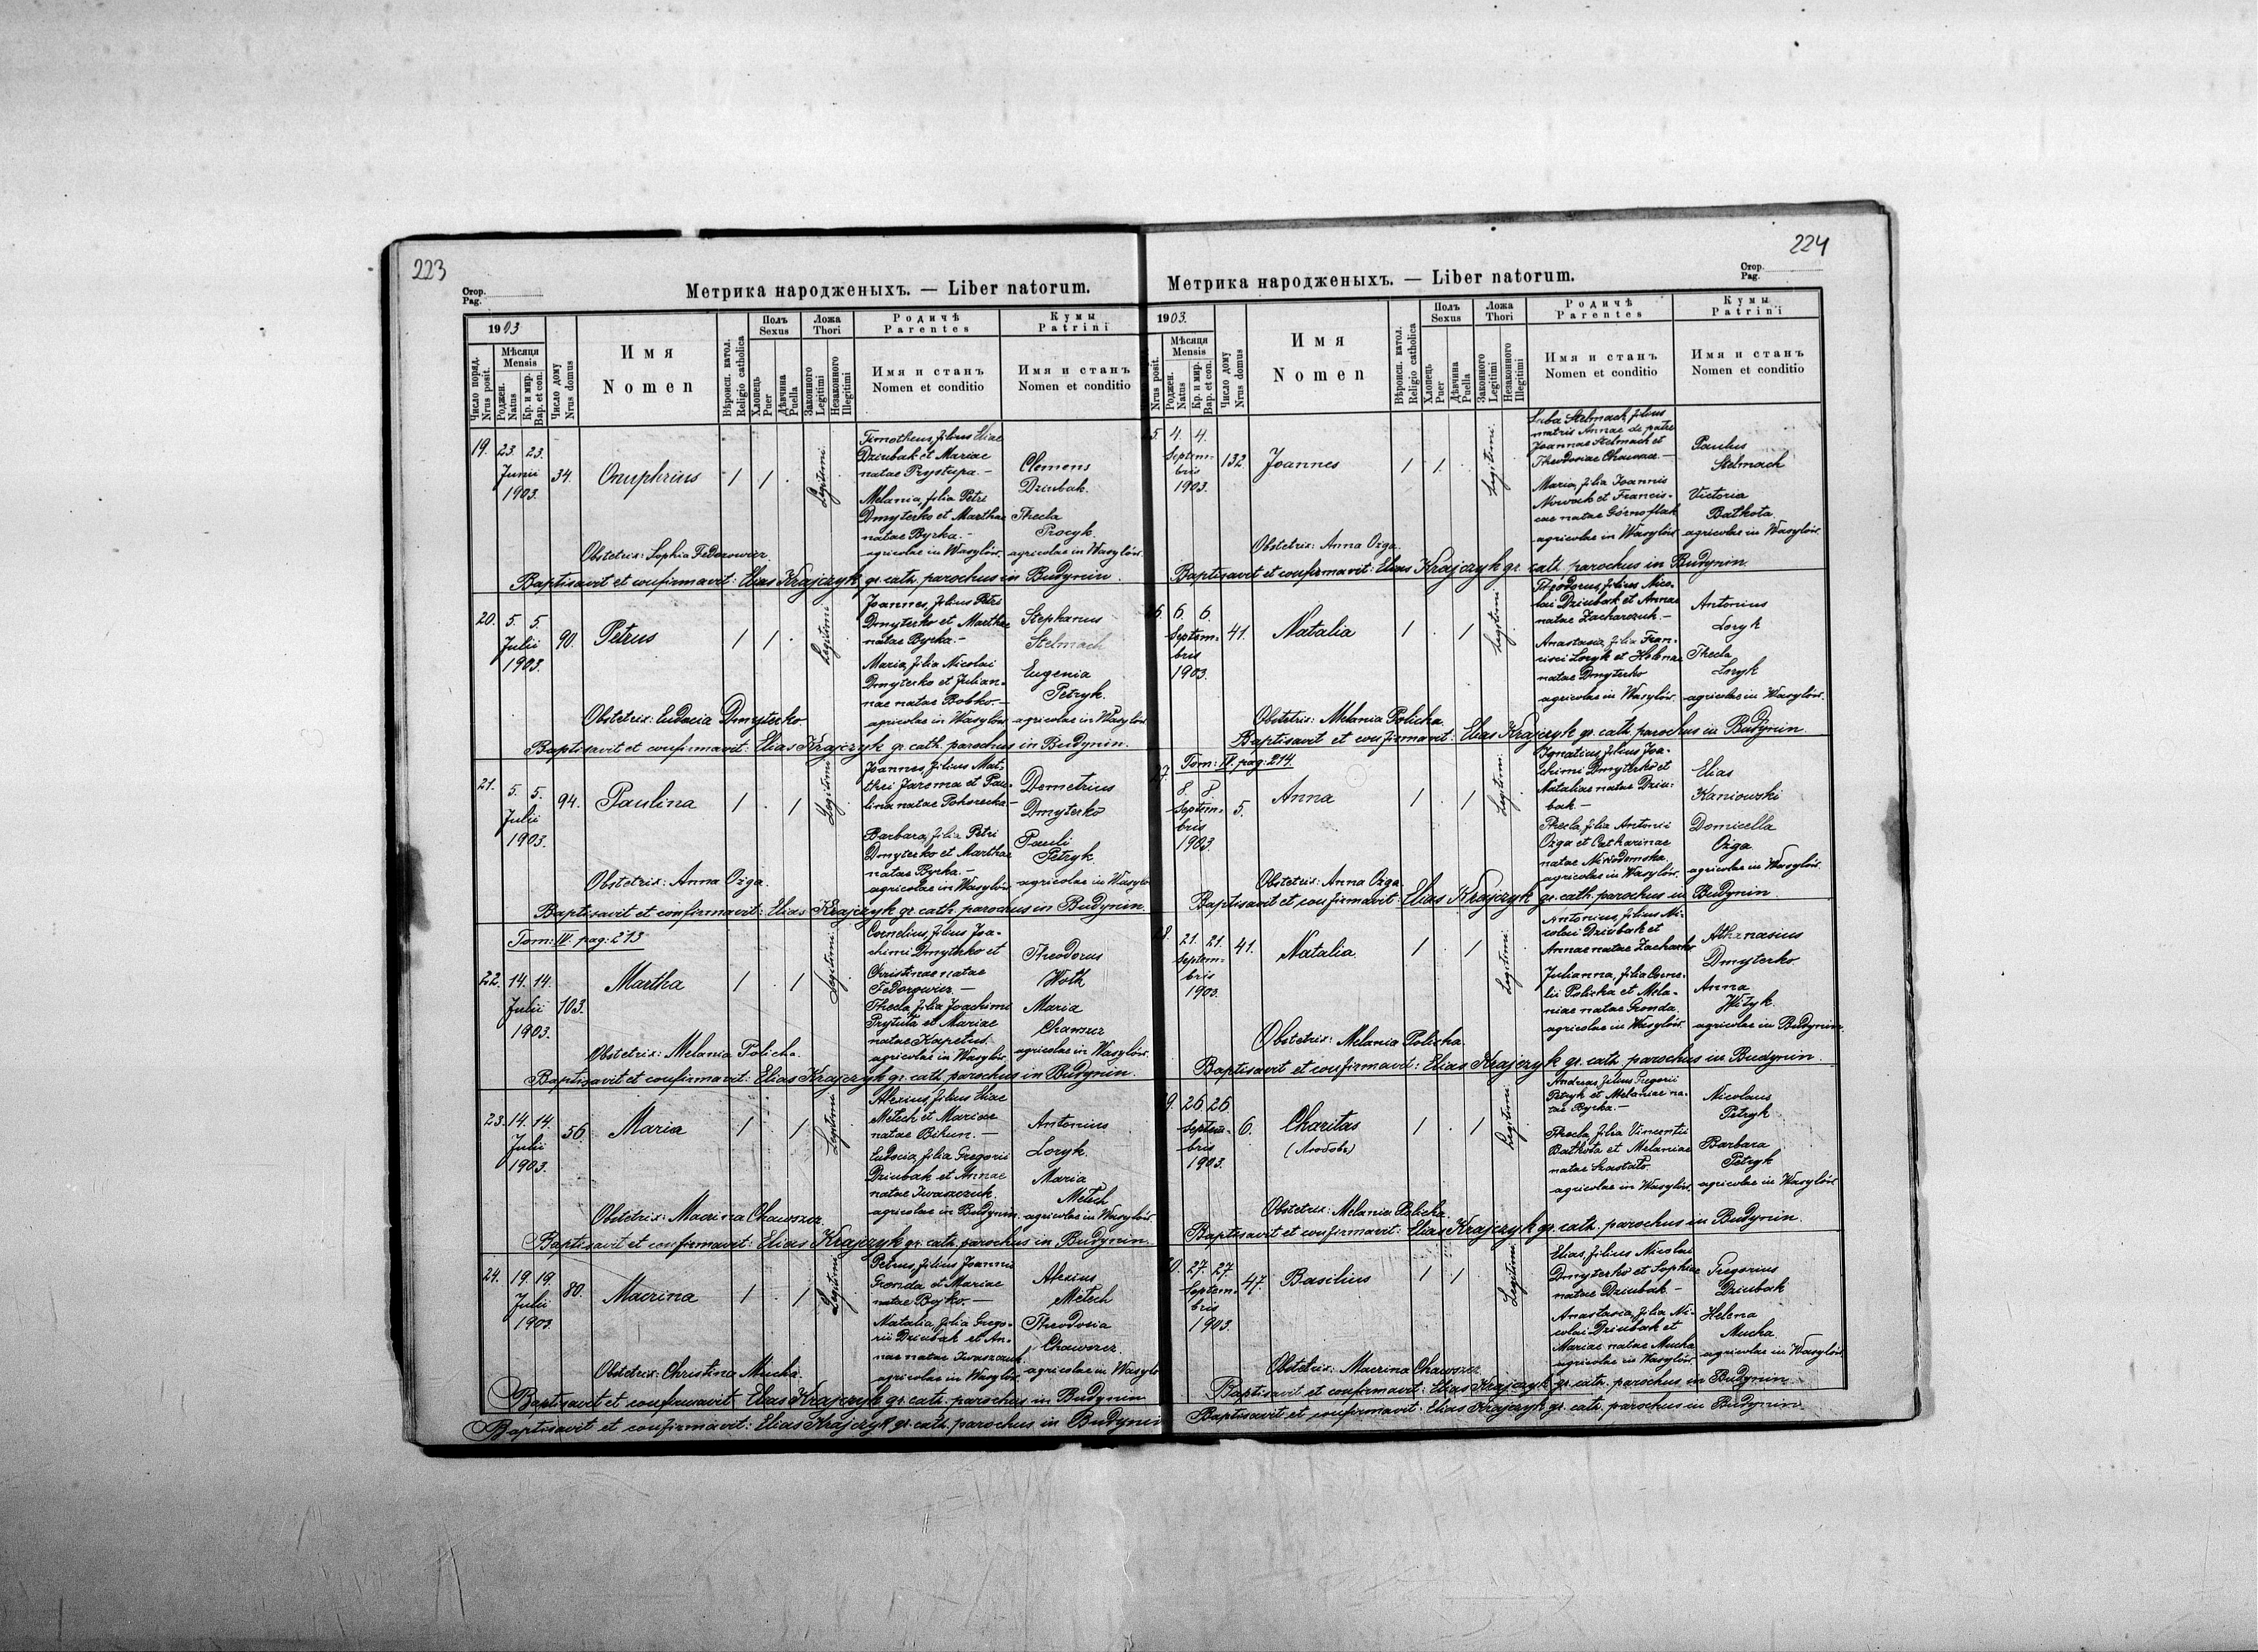 223
Стор.
Pag.
Метрика народженыхъ. — Liber natorum.
1903
Число поряд.
Nrus posit.
Мѣсяця
Mensis
Роджен.
Natus
Кр. и мир.
Bap. et con.
Число дому
Nrus domus
Имя
Nomen
Вѣроисп. катол.
Religio catholica
Полъ
Sexus
Хлопець
Puer
Дѣвчина
Puella
Ложа
Thori
Законного
Legitimi
Незаконного
Illegitimi
Родичѣ
Parentes
Имя и станъ
Nomen et conditio
Кумы
Patrini
Имя и станъ
Nomen et conditio
19. 23. 23.
Junii
1903.
34. Onuphrius 1 1 . Legitimi
Timotheus, filius Eliae
Dziubak et Mariae
natae Prystupa. —
Melania, filia Petri
Dmyterko et Marthae
natae Byrka. —
agricolae in Wasylów.
Clemens
Dziubak.
Thecla
Procyk.
agricolae in Wasylów.
Obstetrix: Sophia Fedorowicz.
Baptisavit et confirmavit: Elias Krajczyk gr. cath. parochus in Budynin.
20. 5. 5.
Julii
1903.
90. Petrus 1 1 . Legitimi
Joannes, filius Petri
Dmyterko et Marthae
natae Byrka. —
Maria, filia Nicolai
Dmyterko et Julian-
nae natae Bobko. —
agricolae in Wasylów
Stephanus
Stelmach
Eugenia
Petryk.
agricolae in Wasylów
Obstetrix: Eudocia Dmyterko.
Baptisavit et confirmavit: Elias Krajczyk gr. cath. parochus in Budynin.
21. 5. 5.
Julii
1903.
94. Paulina 1 . 1 Legitimi
Joannes, filius Mat-
thei Jaroma et Pau-
lina natae Pohorecka —
Barbara, filia Petri
Dmyterko et Marthae
natae Byrka. —
agricolae in Wasylów
Demetrius
Dmyterko
Pauli
Petryk
agricolae in Wasyló
Obstetrix: Anna Ożga.
Baptisavit et confirmavit: Elias Krajczyk gr. cath. parochus in Budynin.
Tom: IV. pag: 213
22. 14. 14.
Julii
1903.
103. Martha 1 . 1 Legitimi
Cornelius, filius Joa-
chimi Dmyterko et
Christinae natae
Fedorowicz. —
Thecla, filia Joachimi
Prytuła et Mariae
natae Kapelus.
agricolae in Wasylów.
Theodorus
Woth
Maria
Chawszcz
agricolae in Wasylów.
Obstetrix: Melania Policha.
Baptisavit et confirmavit: Elias Krajczyk gr. cath. parochus in Budynin.
23. 14. 14.
Julii
1903.
56. Maria 1 . 1 Legitimi
Alexius, filius Eliae
Metech et Mariae
natae Bihun. —
Eudocia, filia Gregorii
Dziubak et Annae
natae Iwaszczuk.
agricolae in Budynin.
Antonius
Loryk.
Maria
Metech
agricolae in Wasylów.
Obstetrix: Macrina Chawszcz.
Baptisavit et confirmavit: Elias Krajczyk gr. cath. parochus in Budynin.
24. 19. 19.
Julii
1903.
80. Macrina 1 . 1 Legitimi
Petrus, filius Joannis
Gronda et Mariae
natae Bojko. —
Natalia, filia Grego-
rii Dziubak et An-
nae natae Iwaszczuk.
agricolae in Wasylów.
Alexius
Metech
Theodosia
Chawszcz.
agricolae in Wasyló
Obstetrix: Christina Mucha.
Baptisavit et confirmavit Elias Krajczyk gr. cath. parochus in Budynin
Baptisavit et confirmavit: Elias Krajczyk gr. cath. parochus in Budynin
224
Стор.
Pag.
Метрика народженыхъ. — Liber natorum.
1903.
Nrus posit.
Мѣсяця
Mensis
Роджен.
Natus
Кр. и мир.
Bap. et con.
Число дому
Nrus domus
Имя
Nomen
Вѣроисп. катол.
Religio catholica
Полъ
Sexus
Хлопець
Puer
Дѣвчина
Puella
Ложа
Thori
Законного
Legitimi
Незаконного
Illegitimi
Родичѣ
Parentes
Имя и станъ
Nomen et conditio
Кумы
Patrini
Имя и станъ
Nomen et conditio
5. 4. 4.
Septem-
bris
1903.
132 Joannes 1 1. Legitimi
Stelmach, filius
matris Annae de patre
Joannae Stelmach et
Theodosiae Chawszcz. —
Maria, filia Joannis
Nowack et Francis-
cae natae Górnoflak
agricolae in Wasylów.
Paulus
Stelmach
Victoria
Bałkota.
agricolae in Wasylów.
Obstetrix: Anna Ożga.
Baptisavit et confirmavit: Elias Krajczyk gr. cath. parochus in Budynin.
6. 6. 6
Septem-
bris
1903.
41. Natalia 1 . 1 Legitimi
Theodorus, filius Nico-
lai Dziubak et Annae
natae Zacharczuk. —
Anastasia, filia Fran-
cisci Loryk et Helenae
natae Dmyterko
agricolae in Wasylów.
Antonius
Loryk
Thecla
Loryk
agricolae in Wasylów.
Obstetrix: Melania Policha.
Baptisavit et confirmavit: Elias Krajczyk gr. cath. parochus in Budynin.
Tom: IV. pag: 214.
27. 8. 8
Septem-
bris
1903.
5. Anna 1 . 1 Legitimi
Ignatius, filius Joa-
chimi Dmyterko et
Nataliae natae Dziu-
bak —
Thecla, filia Antonii
Ożga et Catharinae
natae
agricolae in Wasylów.
Elias
Kaniowski
Domicella
Ożga.
agricolae in Wasylów.
Obstetrix: Anna Ożga
Baptisavit et confirmavit: Elias Krajczyk gr. cath. parochus in Budynin.
8. 21. 21.
Septem-
bris
1903.
41. Natalia. 1 . 1 Legitimi
Antonius, filius Ni-
colai Dziubak et
Annae natae Zacharko
Julianna, filia Corne-
lii Policha et Mela-
niae natae Gronda.
agricolae in Wasylów.
Athanasius
Dmyterko.
Anna
Wityk.
agricolae in Budynin.
Obstetrix: Melania Policha.
Baptisavit et confirmavit: Elias Krajczyk gr. cath. parochus in Budynin.
9. 26. 26.
Septem-
bris
1903.
6. Charitas 1 . 1 Legitimi
(Любовь)
Andreas, filius Gregorii
Petryk et Melaniae na-
tae Byrka. —
Thecla, filia Vincentii
Bałkota et Melaniae
natae
agricolae in Wasylów.
Nicolaus
Petryk
Barbara
Petryk
agricolae in Wasylów
Obstetrix: Melania Policha.
Baptisavit et confirmavit: Elias Krajczyk gr. cath. parochus in Budynin.
0. 27. 27.
Septem-
bris
1903.
47. Basilius 1 1 . Legitimi
Elias, filius Nicolai
Dmyterko et Sophiae
natae Dziubak. —
Anastasia, filia Ni-
colai Dziubak et
Mariae natae Mucha
agricolae in Wasylów.
Gregorius
Dziubak
Helena
Mucha.
agricolae in Wasylów
Obstetrix: Macrina Chawszcz.
Baptisavit et confirmavit: Elias Krajczyk gr. cath. parochus in Budynin.
Baptisavit et confirmavit: Elias Krajczyk gr. cath. parochus in Budynin.